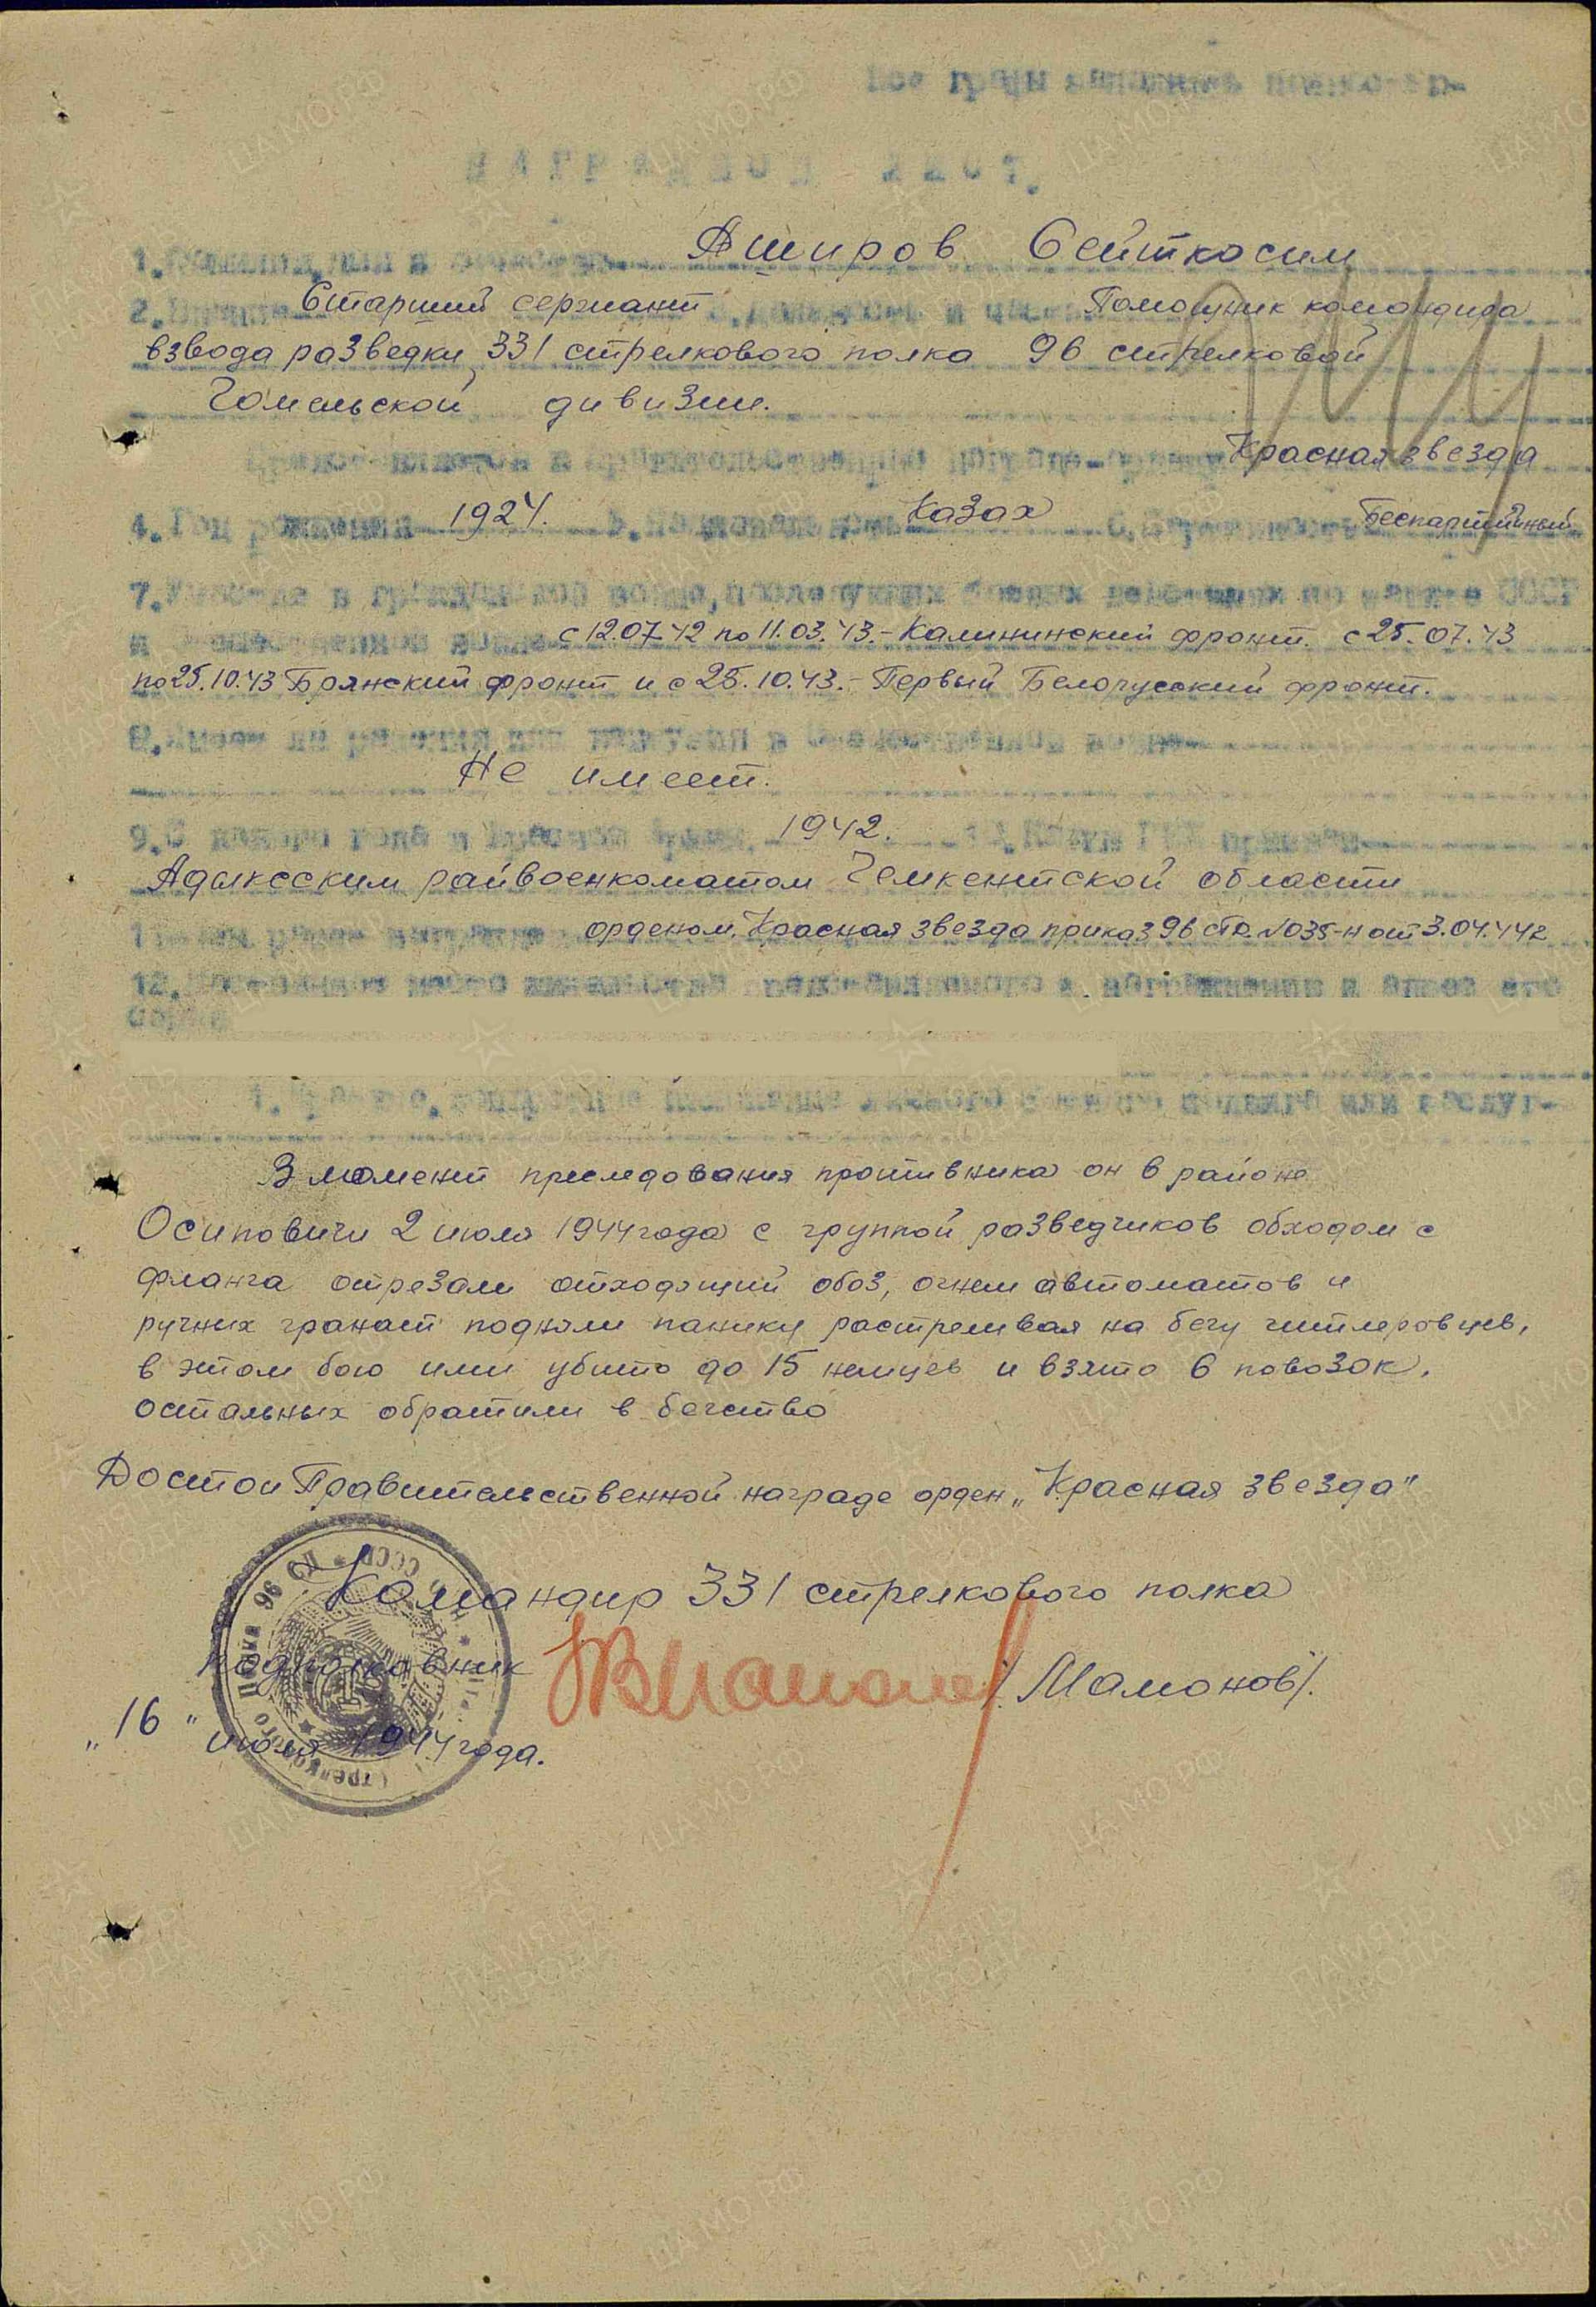 НАГРАДНОЙ ЛИСТ.
1. Фамилия, имя и отчество Аширов Сейткасим
2. Звание Старший сержант 3. Должность и часть Помощник командира
взвода разведки 331 стрелкового полка 96 стрелковой
Гомельской дивизии.
Красная звезда
4. Год рождения 1924. 5. Национальность Казах 6. Партийность Беспартийный
7. Участие в гражданской войне, последующих боевых действиях по защите СССР
и отечественной войне с 12.07.42 по 11.03.43.- Калининский фронт. с 25.07.43
по 25.10.43 Брянский фронт и с 25.10.43.- Первый Белорусский фронт.
8. Имеет ли ранения или контузии в Отечественной войне
Не имеет.
9. С какого года в Красной Армии 1942. 10. Каким РВК призван
райвоенкоматом Чемкентской области
орденом Красная звезда приказ 96 СД №035-н от 3.04.44г
12. Постоянный место жительства представляемого к награждению и адрес его
семьи
1. Краткое, конкретное изложение личного боевого подвига или заслуг-
В момент преследования противника он в районе
Осиповичи 2 июля 1944 года с группой разведчиков обходом с
фланга отрезали отходящий обоз, огнем автоматов и
ручных гранат подняли панику растреливая на бегу гитлеровцев,
в этом бою ими убито до 15 немцев и взято 6 повозок,
остальных обратили в бегство
Достои Правительственной награде орден „Красная звезда"
Командир 331 стрелкового полка
подполковник /Мамонов/.
„16" июля 1944 года.